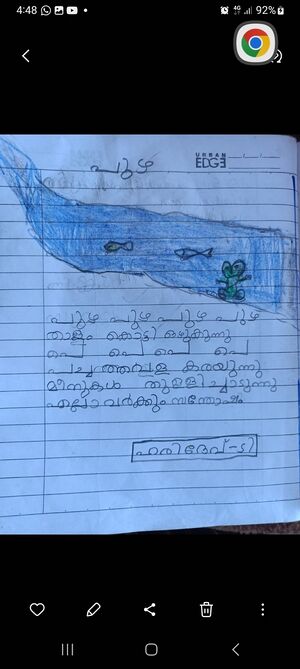 4:48
4G
92%
URBAN
EDGE
പുഴ
പുഴ പുഴ പുഴ പുഴ
താളം കൊട്ടി ഒഴുകുന്നു
പെ പെ പെ പെ
പച്ചത്തവള കരയുന്നു
മീനുകൾ തുള്ളിച്ചാടുന്നു
എല്ലാവർക്കും സന്തോഷം
ഹരിദേവ്-ടി